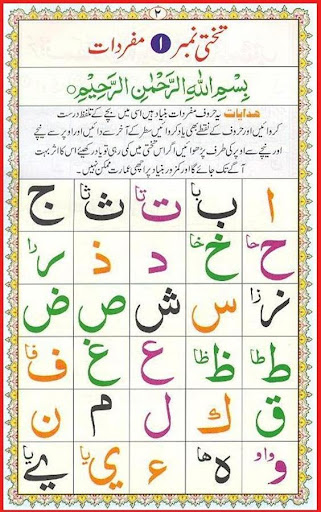 ٢
تختی نمبر ۱ مفردات
بِسْمِ اللهِ الرَّحْمٰنِ الرَّحِيْمِ
ہدایات یہ حروف مفردات بنیاد ہیں اسی میں بچے کے تلفظ درست
کروائیں اور حروف کے نقطے بھی یاد کروائیں سطر کے آخر سے دائیں اور اوپر سے نیچے
اور نیچے سے اوپر کی طرف پڑھوائیں اگر اس تختی میں کمی رہی تو یاد رکھیئے اس کا اثر بہت
آگے تک جائے گا اور کمزور بنیاد پر اچھی عمارت ممکن نہیں۔
ا ب با ت تا ث ثا ج
ح حا خ خا د ذ ر را
ز زا س ش ص ض
ط طا ظ ظا ع غ ف فا
ق ك ل م ن
و واو ه ها ء ي يا ے يا